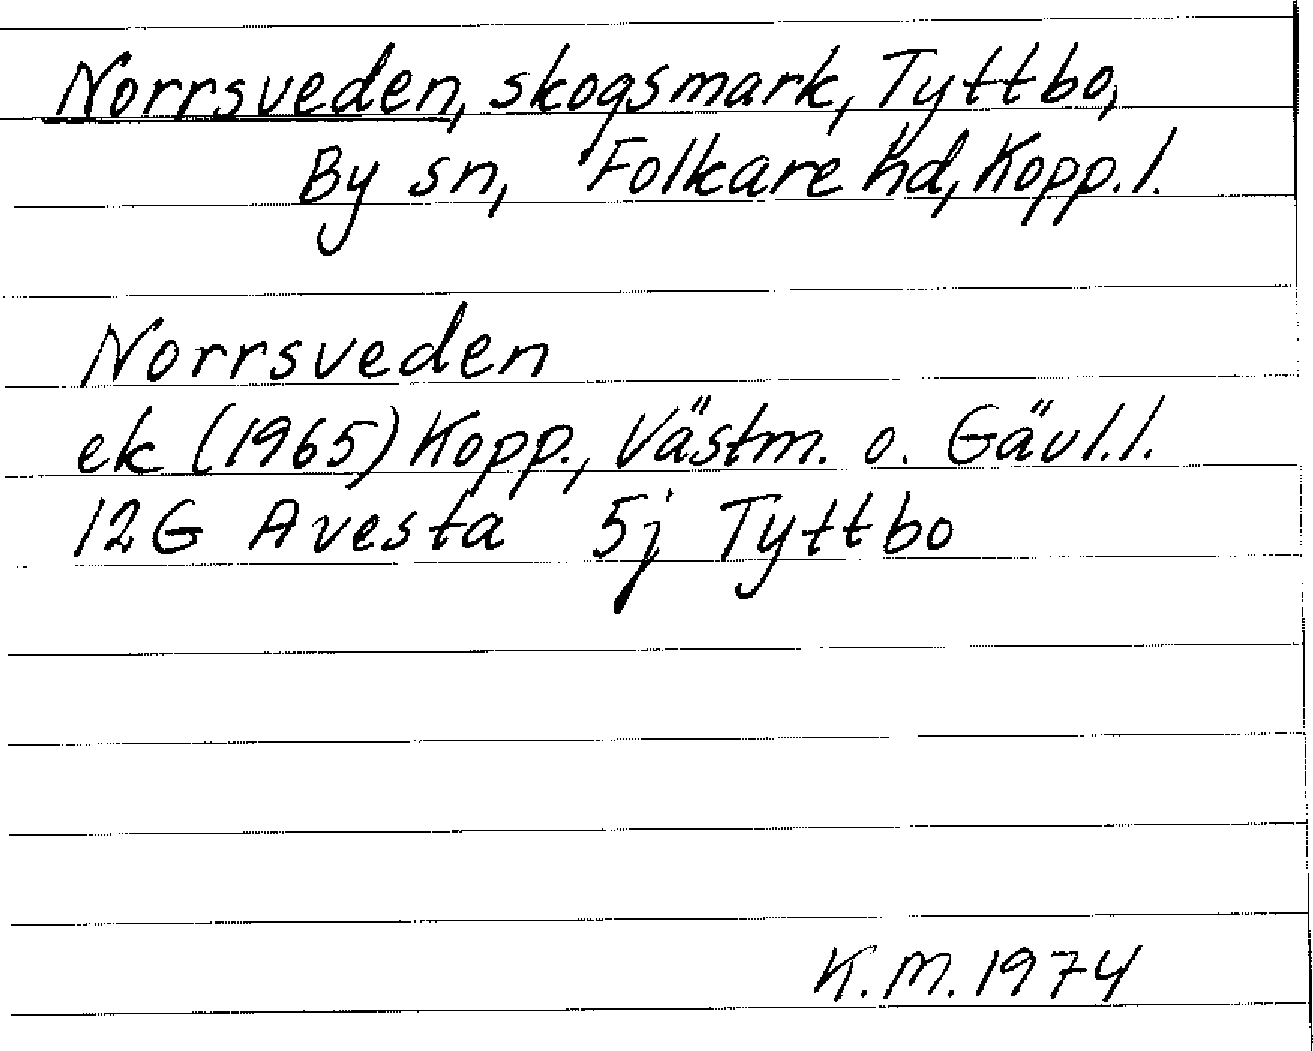 Norrsveden, skogsmark, Tyttbo,
By sn, Folkare hd, Kopp. l.
Norrsveden
ek (1965) Kopp., Västm. o. Gävl. l.
12G Avesta 5j Tyttbo
K.M. 1974